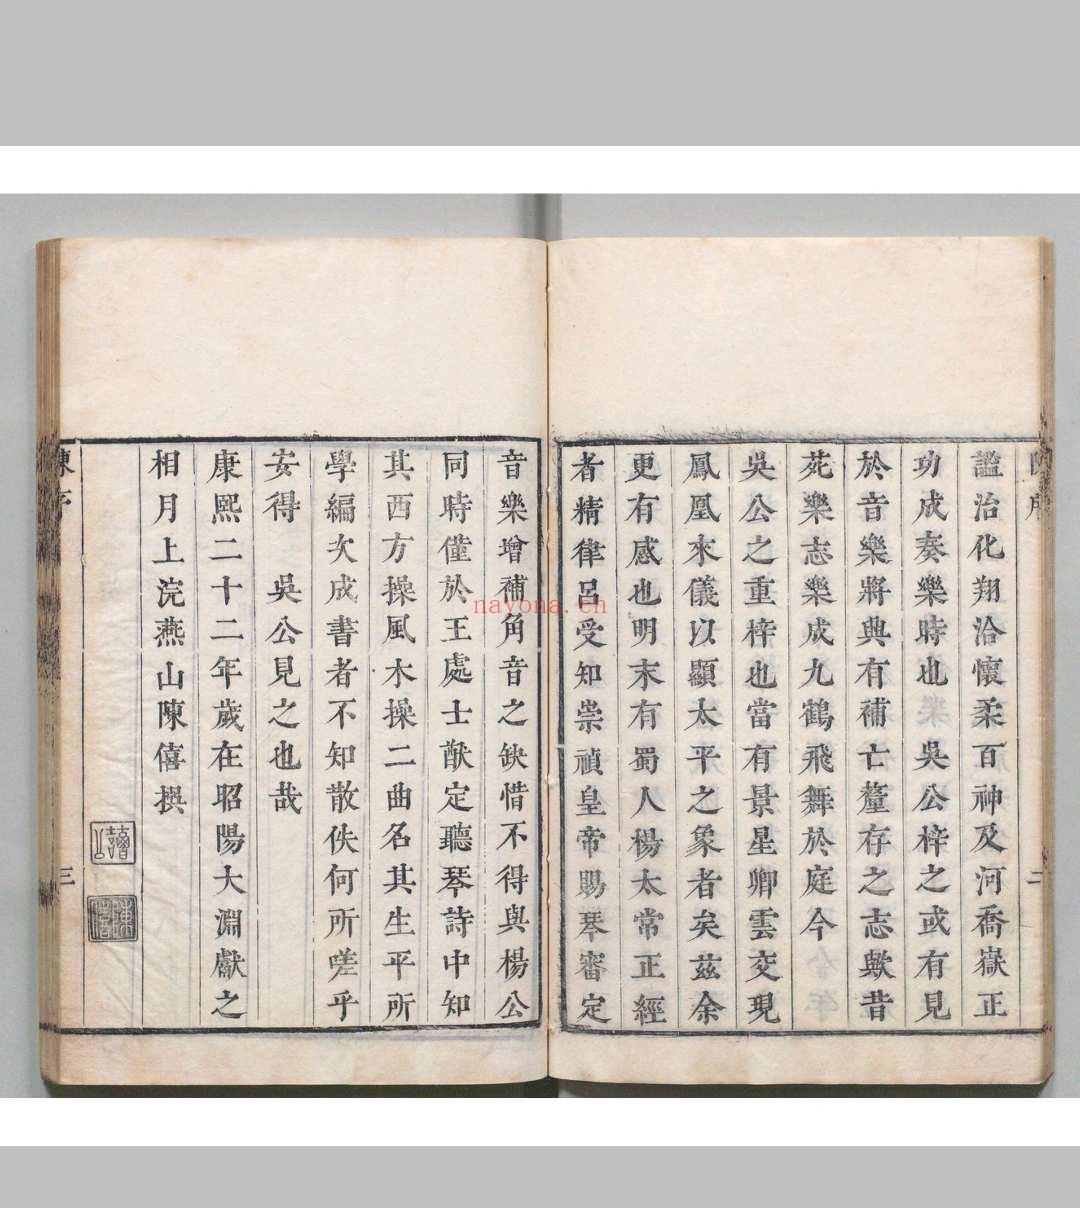 謐治化翔洽懷柔百神及河喬嶽正
功成奏樂時也　吳公梓之或有見
於音樂將典有補亡釐存之志歟昔
茺樂志樂成九鶴飛舞於庭今
吳公之重梓也當有景星卿雲交現
鳳凰來儀以顯太平之象者矣茲余
更有感也明末有蜀人楊太常正經
者精律呂受知崇禎皇帝賜琴審定
二
音樂增補角音之缺惜不得與楊公
同時僅於王處士猷定聽琴詩中知
其西方操風木操二曲名其生平所
學編次成書者不知散佚何所嗟乎
安得　吳公見之也哉
康熙二十二年歲在昭陽大淵獻之
相月上浣燕山陳僖撰
陳序
三
nayona.cn